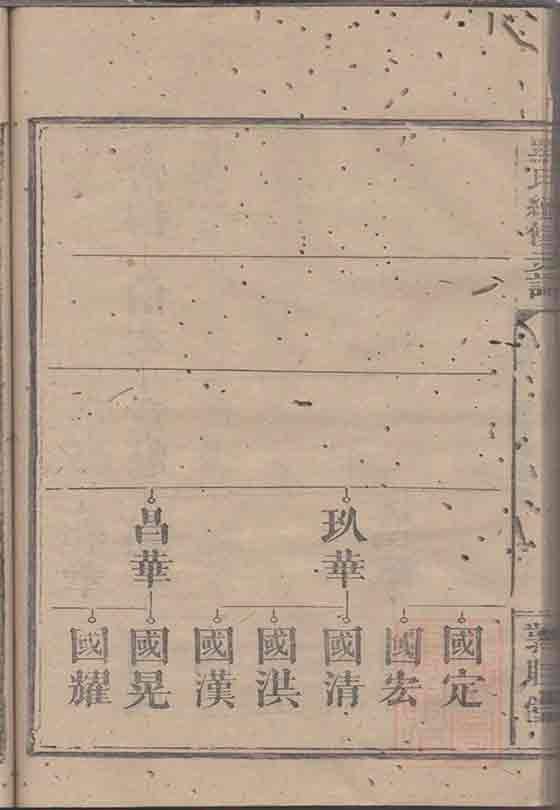 氏續修支譜
玖華
呂華
國定
國宏
國清
國洪
國漢
國晃
國耀